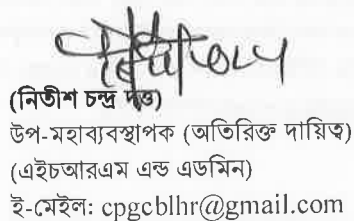 (নিতীশ চন্দ্র দত্ত)
উপ-মহাব্যবস্থাপক (অতিরিক্ত দায়িত্ব)
(এইচআরএম এন্ড এডমিন)
ই-মেইল: cpgcblhr@gmail.com